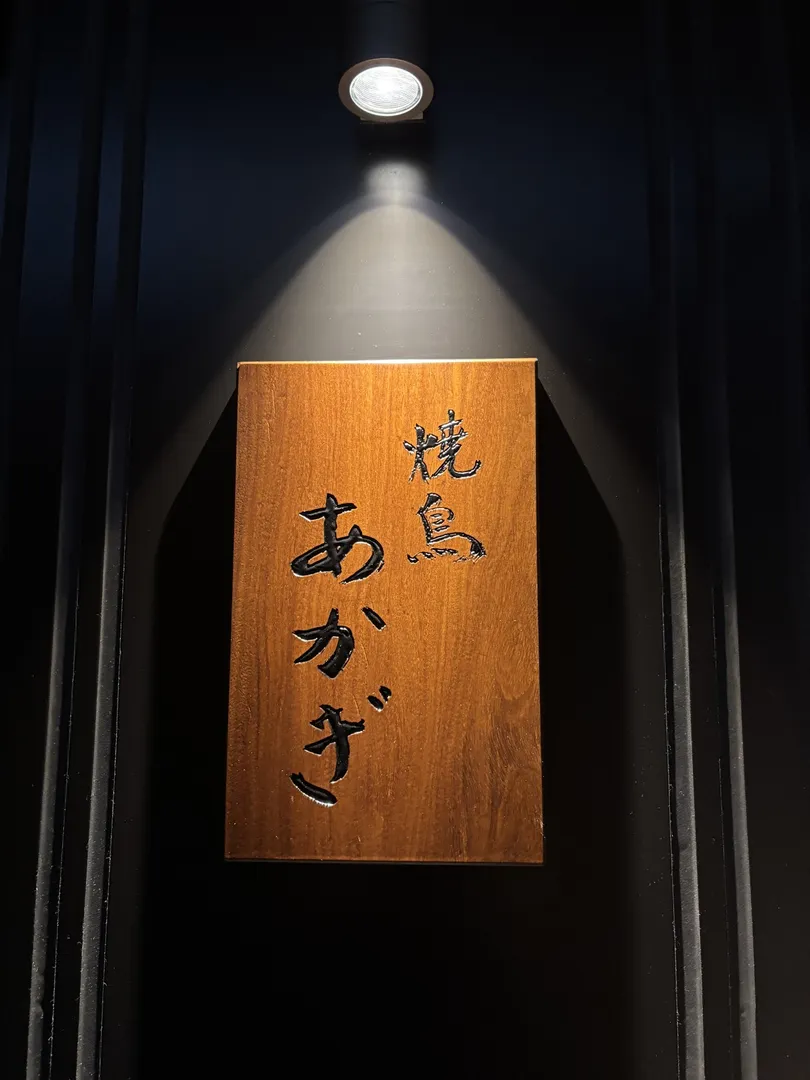 焼鳥
あかぎ